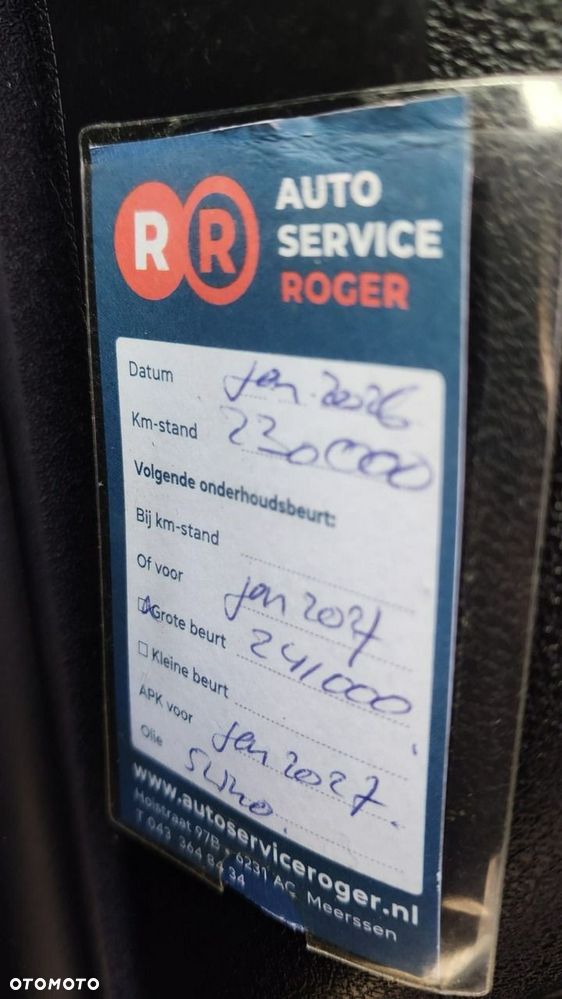 RR AUTO
SERVICE
ROGER
Datum jan. 2026
Km-stand 230000
Volgende onderhoudsbeurt:
Bij km-stand
Of voor jan 2027
Grote beurt 241000
Kleine beurt
APK voor jan 2027.
Olie
www.autoserviceroger.nl
Holstraat 97B • 6231 AC Meerssen
T 043 364 84 34
OTOMOTO